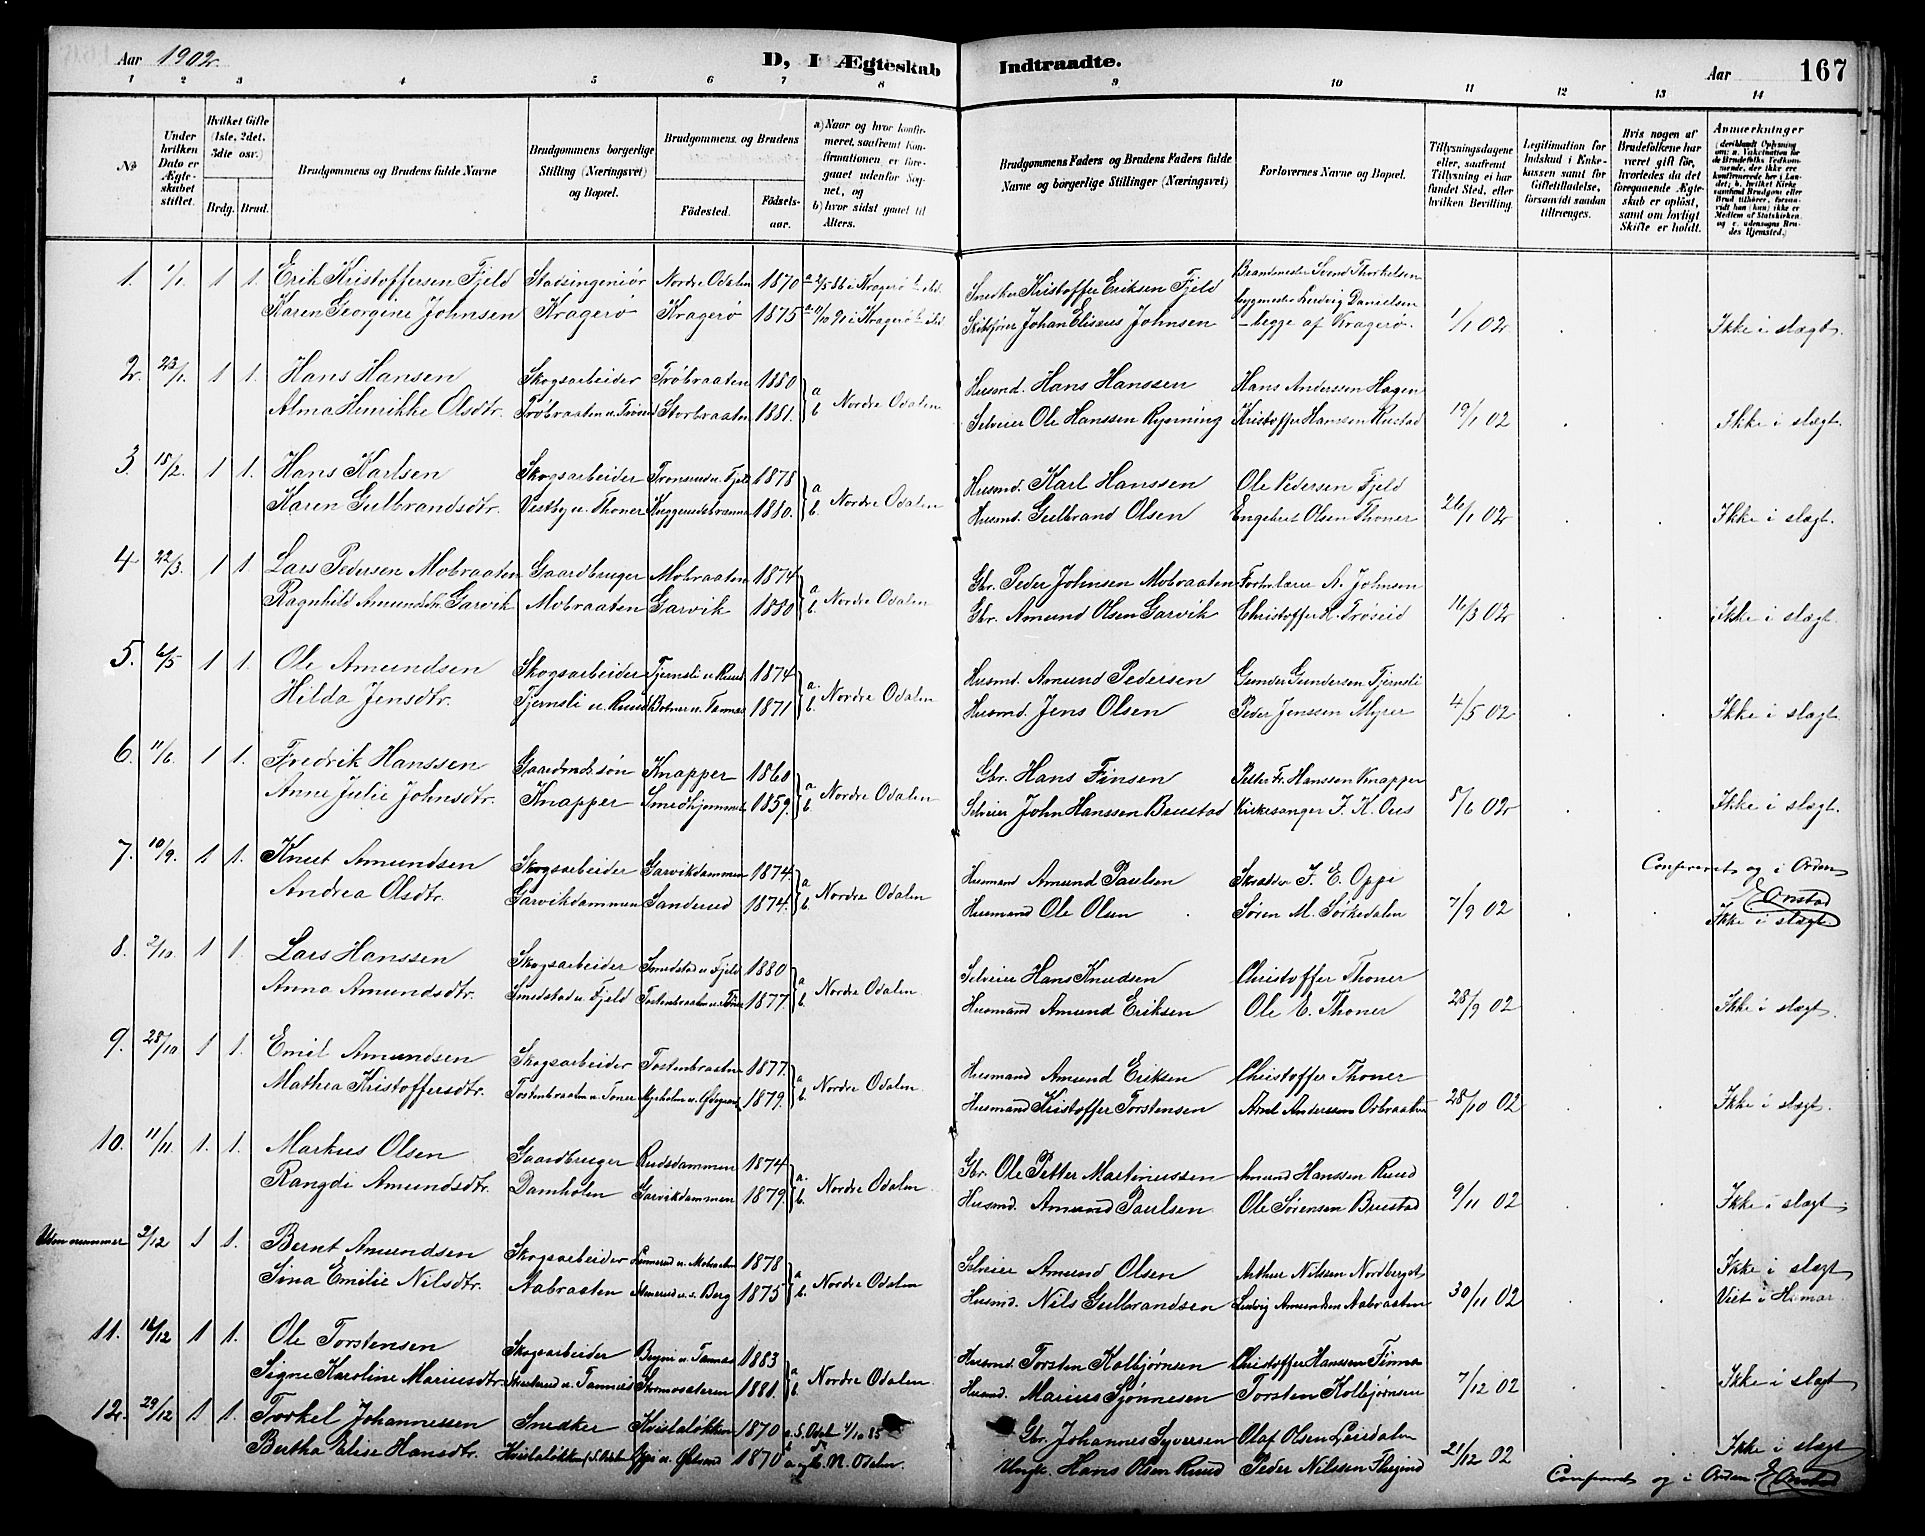 Aar 1902. D, I Ægteskab Indtraadte. Aar 167
1 2 3 4 5 6 7 8 9 10 11 12 13 14
No
Under hvilken Dato er Ægteskabet stiftet.
Hvilket Gifte (1ste, 2det, 3die osv.)
Brdg. Brud.
Brudgommens og Brudens fulde Navne
Brudgommens borgerlige Stilling (Næringsvei) og Bopæl.
Brudgommens og Brudens
Fødested. Fødselsaar.
a) Naar og hvor konfirmeret, saafremt Konfirmationen er foregaaet udenfor Sognet, og
b) hvor sidst gaaet til Alters.
Brudgommens Faders og Brudens Faders fulde Navne og borgerlige Stillinger (Næringsvei)
Forlovernes Navne og Bopæl.
Tillysningsdagene eller, saafremt Tillysning ei har fundet Sted, efter hvilken Bevilling.
Legitimation for Indskud i Enkekassen samt for Giftetilladelse, forsaavidt saadan tiltrænges.
Hvis nogen af Brudefolkene har været gift før, hvorledes da det foregaaende Ægteskab er opløst, samt om lovligt Skifte er holdt.
Anmærkninger
1. 1/1 1 1. Erik Kristoffersen Fjeld Stadsingeniør Nordre Odalen 1870 a 2/5 86 i Kragerø b Snerker Kristoffer Eriksen Fjeld Brandmester Svend Thorkelsen
Karen Georgine Johnsen Kragerø Kragerø 1875 a 11/10 91 i Kragerø b Skibsfører Johan Elisæus Johnsen Bygmester Ludvig Danielsen
begge af Kragerø. 1/1 02 Ikke i slægt.
2. 23/1 1 1. Hans Hansen Skogsarbeider Trøbraaten 1880 a Nordre Odalen Husmd. Hans Hanssen Hans Anderssen Hagen
Alma Henrikke Olsdtr. Trøbraaten u. Trøseid Storbraaten 1881. b Selveier Ole Hanssen Rymning Kristoffer Hanssen Rustad 19/1 02 Ikke i slægt.
3. 15/2 1 1. Hans Karlsen Skogsarbeider Tronsrud u. Fjeld 1878 a Nordre Odalen Husmd. Karl Hanssen Ole Pedersen Fjeld
Karen Gulbrandsdtr. Vestby u. Thoner 1880. b. Husmd. Gulbrand Olsen Engebret Olsen Thoner 26/1 02 Ikke i slægt.
4 22/3. 1 1. Lars Pedersen Mobraaten Gaardbruger Mobraaten 1874 a Nordre Odalen Gbr. Peder Johnsen Mobraaten A. Johnsen
Ragnhild Amundsdtr. Garvik Mobraaten Garvik 1880 b. Gbr. Amund Olsen Garvik Christoffer H. Trøseid 16/3 02 Ikke i slægt.
5. 6/5 1 1. Ole Amundsen Skogsarbeider Tjernsli u. Ruud 1874 a. Nordre Odalen Husmd. Amund Pedersen Gunder Gundersen Tjernsli
Hilda Jensdtr. Tjernsli u. Ruud Botner u. Tannæs 1871 b Husmd. Jens Olsen Peder Jenssen Myrer 4/5 02 Ikke i slægt.
6. 11/6 1 1. Fredrik Hanssen Gaardmdssøn Knapper 1860 a Nordre Odalen Gbr. Hans Finsen Petter Fr. Hanssen Knapper
Anne Julie Johnsdtr. Knapper 1859. b Selveier John Hanssen Brustad Kirkesanger J. K. Oves 8/6 02 Ikke i slægt.
7. 10/9. 1 1. Knut Amundsen Skogsarbeider Garvikdammen 1874. a Nordre Odalen Husmand Amund Paulsen Skrædder J. E. Oppi Confereret og i Orden
Andrea Olsdtr. Garvikdammen Sanderud 1874. b. Husmand Ole Olsen Søren M. Sørkedalen 7/9 02 E Onstad
Ikke i slægt.
8. 2/10. 1 1. Lars Hanssen Skogsarbeider Smedstad u. Fjeld 1880 a Nordre Odalen. Selveier Hans Knudsen Christoffer Thoner
Anna Amundsdtr. Smedstad u. Fjeld Tostenbraaten u. Toner 1877. b. Husmand Amund Eriksen Ole E. Thoner 28/9 02 Ikke i slægt.
9. 28/10 1 1. Emil Amundsen Skogsarbeider Tostenbraaten 1877. a Nordre Odalen. Husmand Amund Eriksen Christoffer Thoner
Mathea Kristoffersdtr. Tostenbraaten u. Toner 1879. b. Husmand Kristoffer Torstensen Arnt Anderssen Orbraaten 28/10 02 Ikke i slægt.
10. 11/11. 1. 1. Markus Olsen Gaardbruger Rudsdammen 1874 a. Nordre Odalen. Gbr. Ole Petter Martinussen Amund Hanssen Ruud
Rangdi Amundsdtr. Damholen Garvikdammen 1879. b. Husmd. Amund Paulsen Ole Sørensen Brustad 9/11 02 Ikke i slægt.
Uden nummer 2/12 1 1. Bernt Amundsen Skogsarbeider 1878 a Nordre Odalen Selveier Amund Olsen Arthur Nilssen Nordberget Ikke i slægt
Sina Emilie Nilsdtr. Aabraaten 1875 b. Husmd. Nils Gulbrandsen Ludvig Amundsen Aabraaten 30/11 02 Viet i Hamar.
11. 14/12 1 1. Ole Torstensen Skogsarbeider 1883 a Nordre Odalen. Husmd. Torsten Kolbjørnsen Christoffer Hanssen Finna
Signe Karoline Mariusdtr. 1881. b Husmd. Marius Sjønnesen Torsten Kolbjørnsen 7/12 02 Ikke i slægt
12. 29/12 1 1. Torkel Johannessen Snedker Kvistaløkken 1870 a. S. Odal 4/10 85 Gbr. Johannes Syversen Olaf Olsen Leirdalen
Bertha Elise Hansdtr. Kvistaløkken 1870 a og b. N. Odalen. Ungk. Hans Olsen Ruud Peder Nilssen 21/12 02 Ikke i slægt
Confereret og i Orden. E Onstad